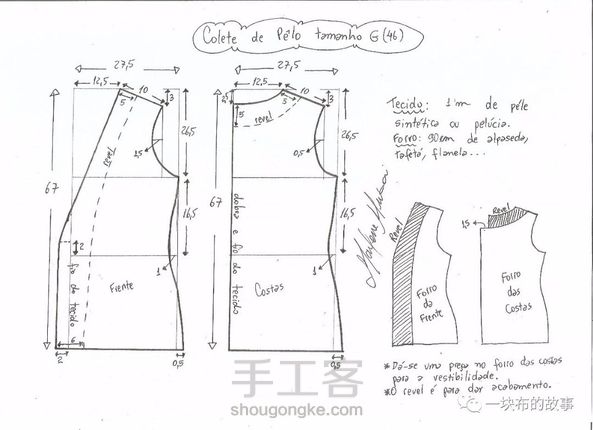 Colete de Pêlo tamanho G (46)
27,5
12,5
10
5
3
26,5
1,5
67
revel
16,5
2
1
fio do tecido
Frente
6
2
0,5
27,5
12,5
10
2,5
5
3
5
revel
26,5
0,5
67
dobra e fio do tecido
16,5
1
Costas
0,5
Tecido: 1m de pele
sintética ou pelúcia.
Forro: 90cm de alpaseda,
tafetá, flanela...
Revel
Forro
da
Frente
Revel
1,5
Forro
das
Costas
*Dá-se uma prega no forro das costas
para a vestibilidade.
*O revel é para dar acabamento.
手工客
shougongke.com
一块布的故事